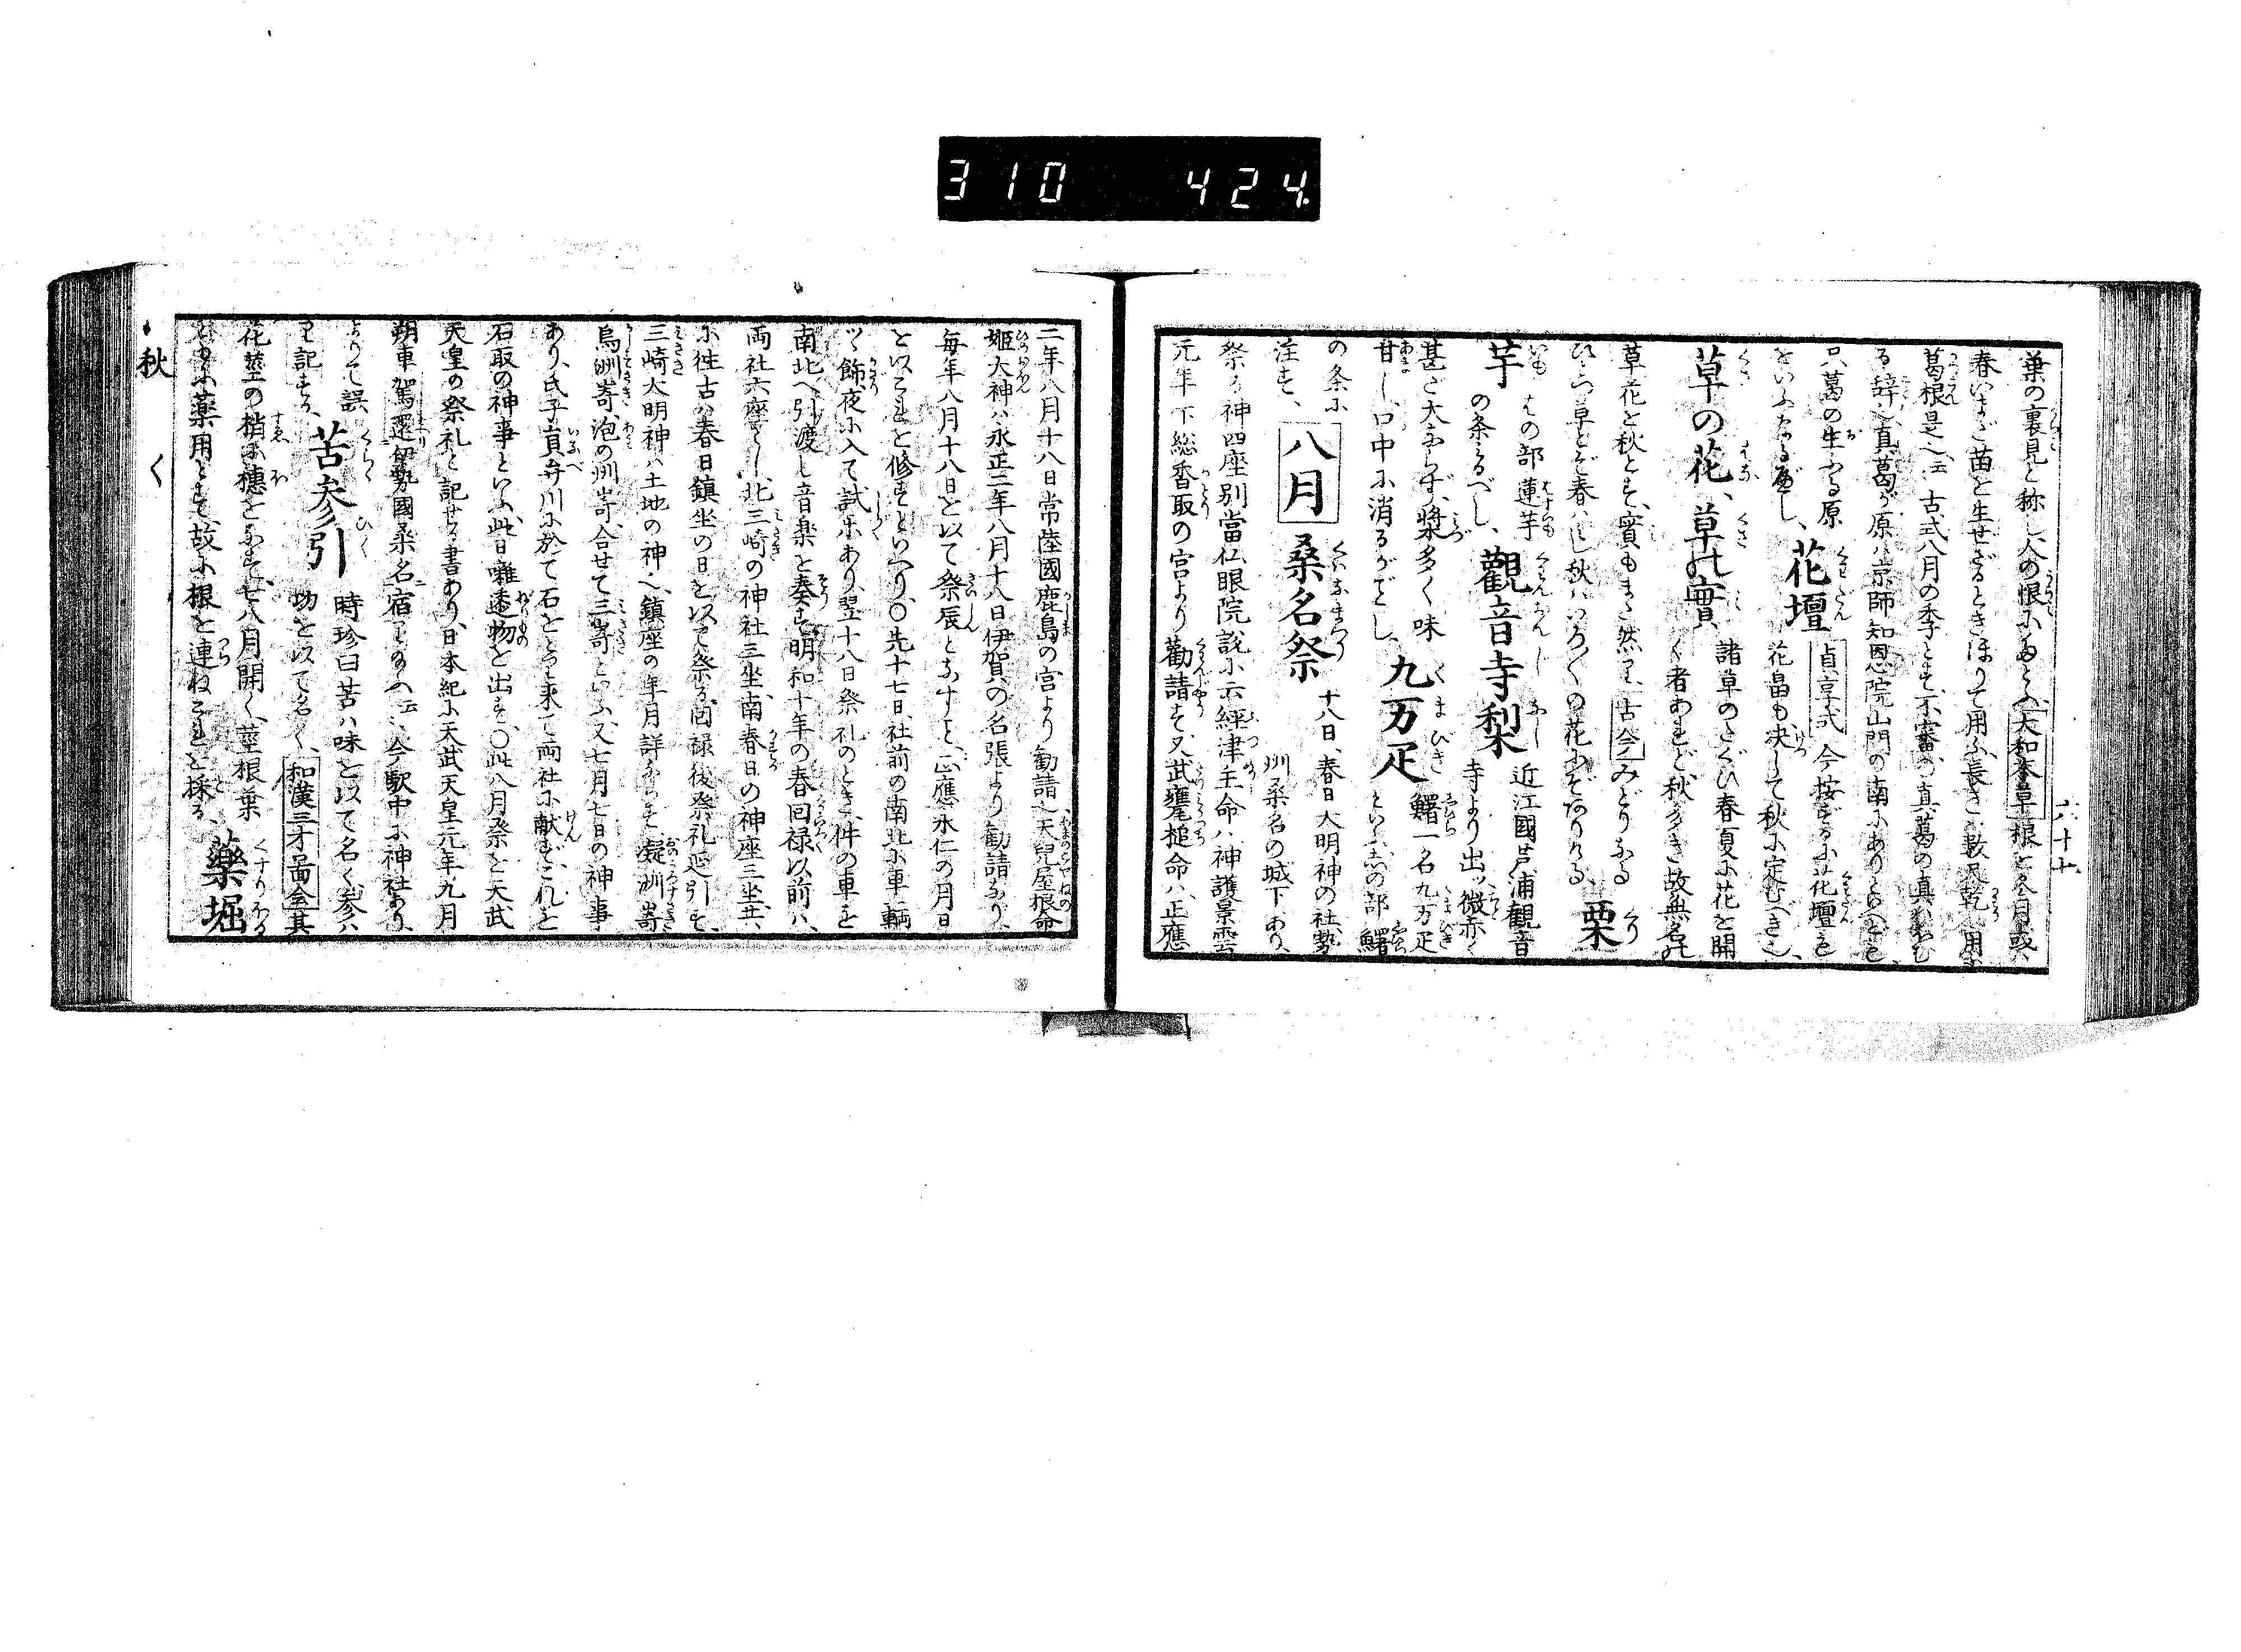 310 424
葉の裏見と称し人の恨にたとふ大和本草根を冬月或ハ
春いまだ苗を生せざるときほりて用ふ長さ数尺乾用す
葛根是也云云古式八月の季とす不審真葛の真ハほむ
る辞也真葛が原ハ京師知恩院山門の南にありといへども
只葛の生ふる原
をいふなるべし、
花壇
貞享式今按ずるに花壇も
花畠も决して秋に定むべき也、
草の花、草の實
諸草のたぐひ春夏に花を開
く者あれど秋多き故無名の
草花を秋とす、實もまた然り、古今みどりなる
ひとつ草とぞ春ハ見し秋ハいろ〱の花にぞありける、
栗
芋
はの部蓮芋
の条見るべし、
觀音寺梨
近江國芦浦観音
寺より出ツ微赤く
甚だ大ならず漿多く味
甘し口中に消るがごとし、
九万疋
鱪一名九万疋
といふ志の部鱪
の条に
注す、
八月
桑名祭
十八日、春日大明神の社勢
州桑名の城下あり、
祭る神四座別當仏眼院説に云經津主命ハ神護景雲
元年下総香取の宮より勸請す又武甕槌命ハ正應
二年八月十八日常陸國鹿島の宮より勧請也天兒屋根命
姫大神ハ永正二年八月十八日伊賀の名張より勸請なり、
毎年八月十八日を以て祭辰となすこと、正應永仁の月日
を以これを修すといへり、〇先十七日社前の南北に車輛
ヲ飾夜に入て試楽あり翌十八日祭礼のとき件の車を
南北へ引渡し音楽を奏す明和十年の春囘禄以前ハ、
両社六座にし北三崎の神社三坐南春日の神座三坐共
に徃古ハ春日鎮坐の日を以て祭る囘禄後祭礼延引す、
三崎大明神ハ土地の神也鎮座の年月詳ならず凝洲嵜
烏洲嵜泡の州嵜合せて三嵜といふ又七月七日の神事
あり、氏子員弁川に於て石をとり来て両社に献ずこれを
石取の神事といふ此日囃遶物を出す、〇此八月祭を天武
天皇の祭礼と記せる書あり、日本紀に天武天皇元年九月
朔車駕還伊勢國桑名ニ宿リ玉ふ云云今駅中に神社あり、
よりて誤
り記する、
苦参引
時珍曰苦ハ味を以て名く参ハ
功を以て名く、和漢三才圖会其
花莖の梢に穗をなす七八月開く、莖根葉
ともに薬用とす故に根を連ねこれを採る、
藥堀
秋
く
六十七